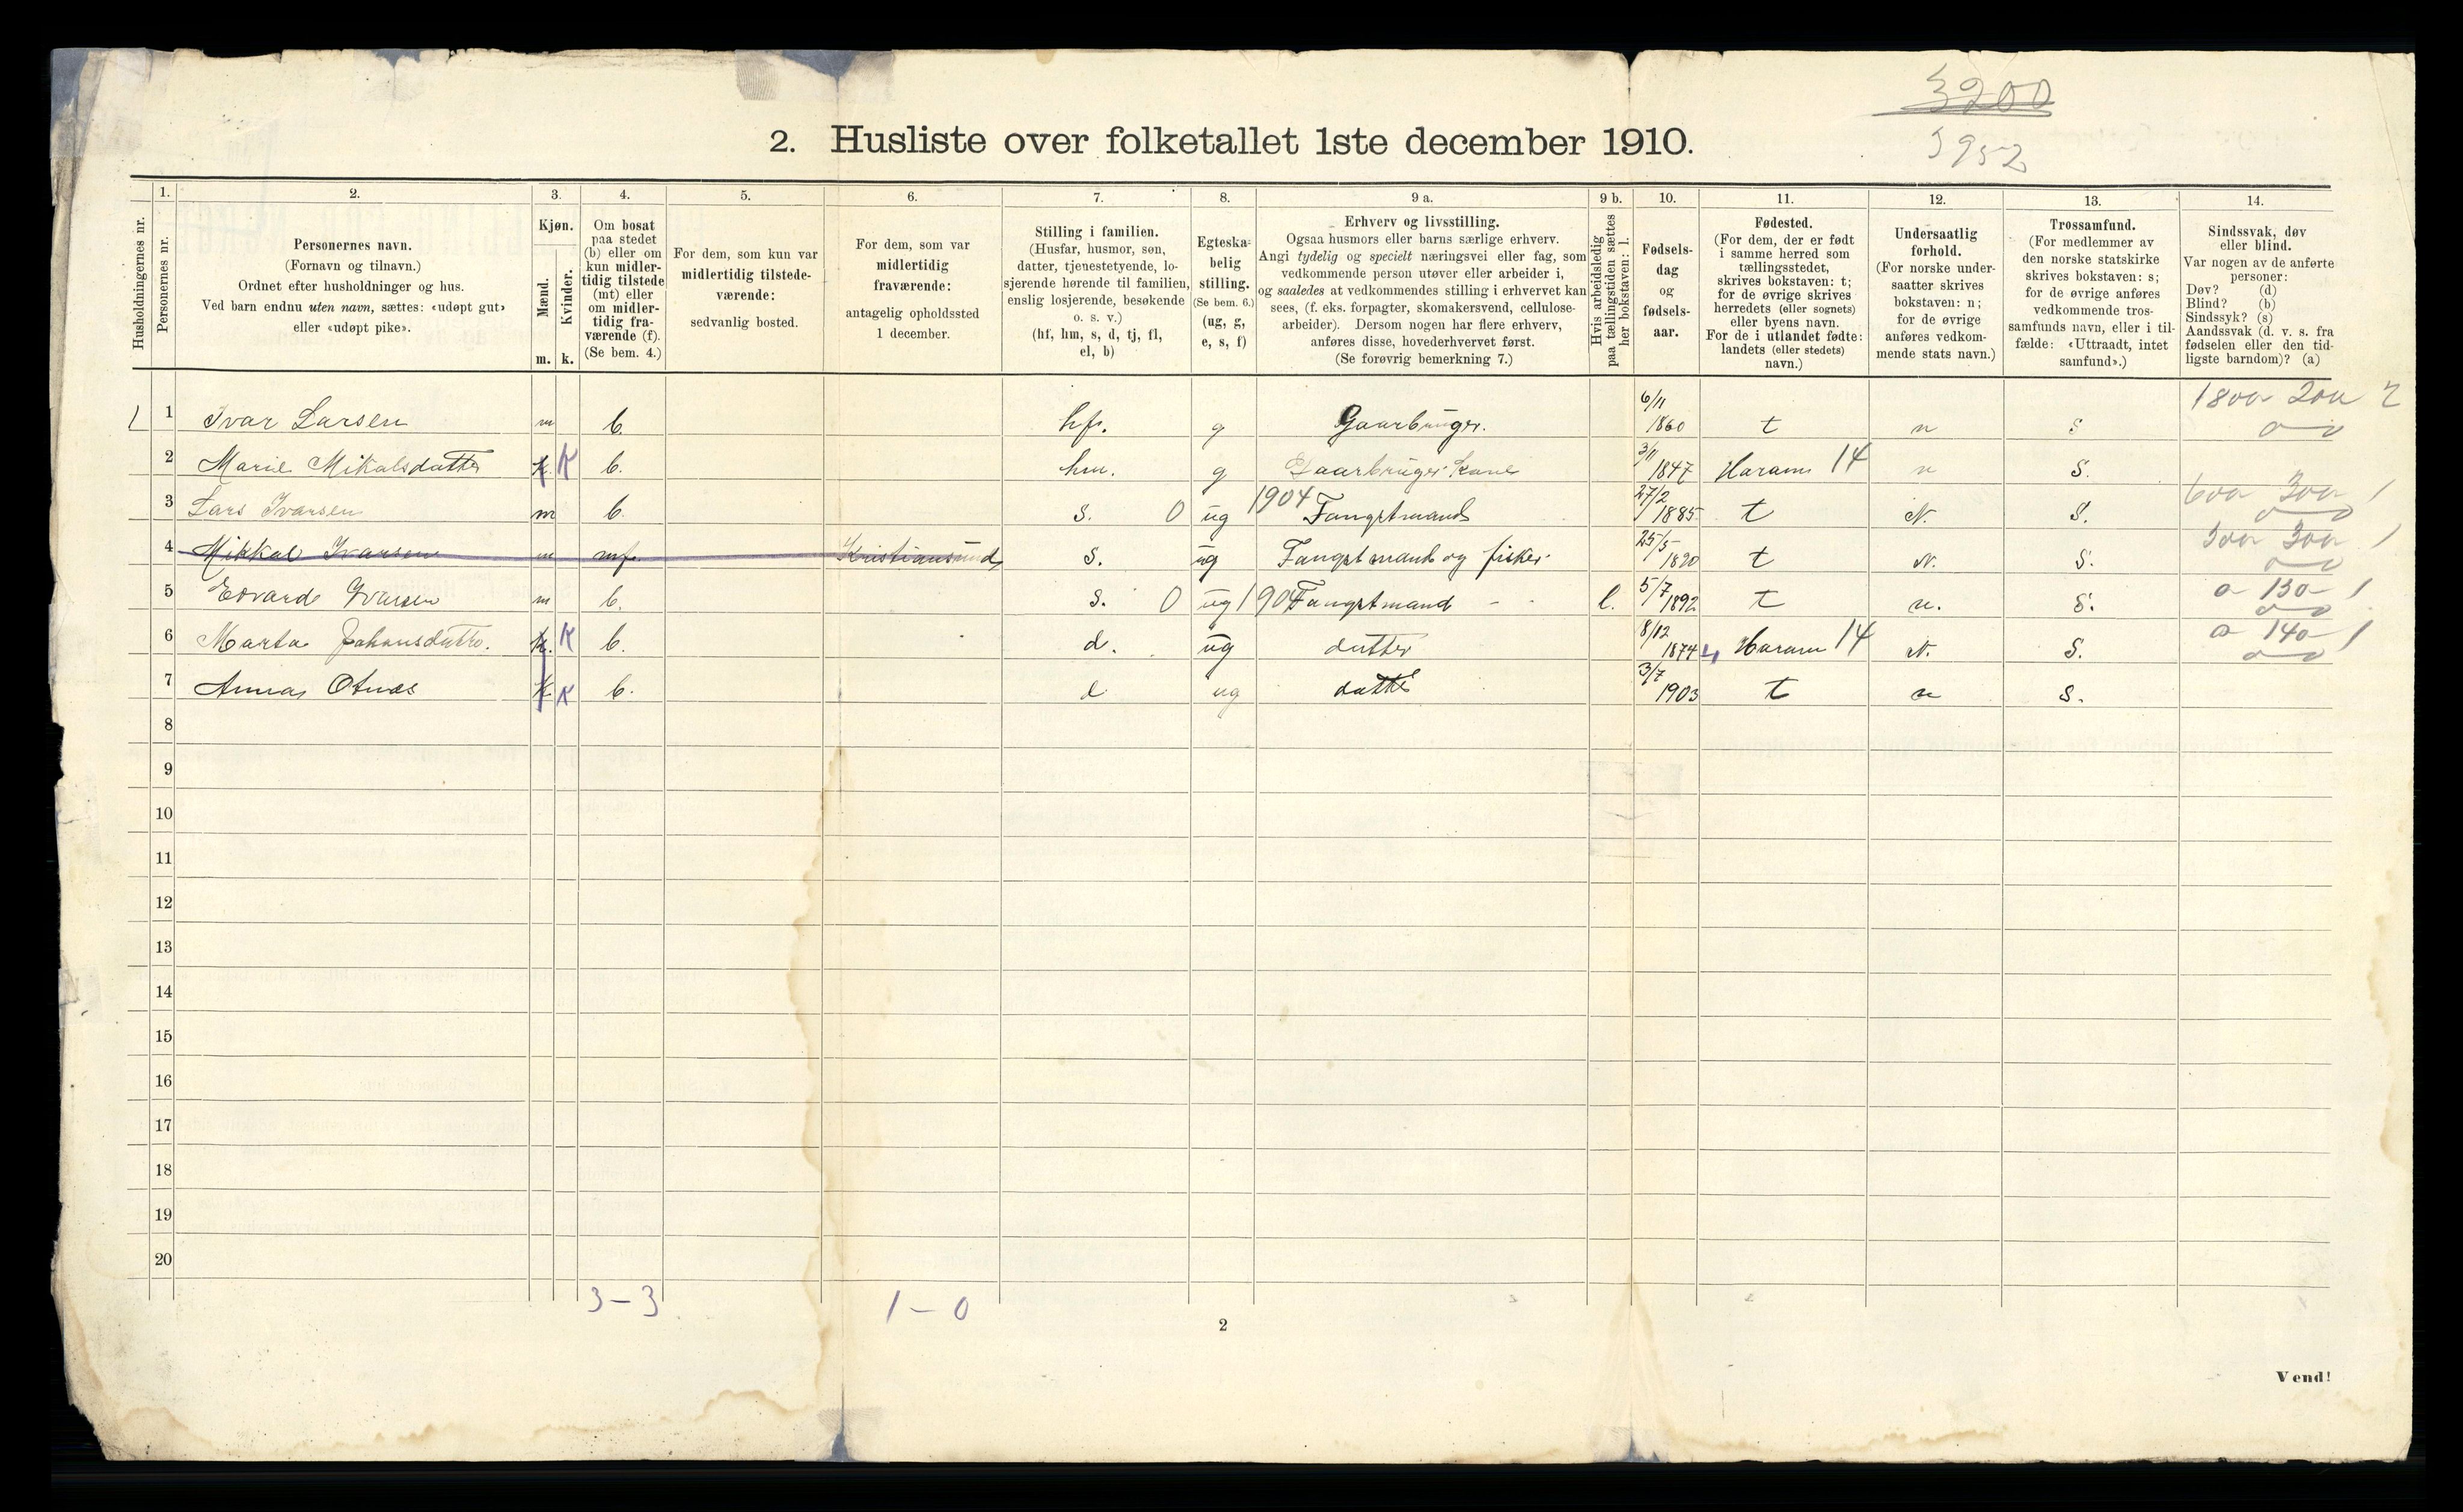 3200
5952
2. Husliste over folketallet 1ste december 1910.
Husholdningernes nr.
1. Personernes nr.
2. Personernes navn.
(Fornavn og tilnavn.)
Ordnet efter husholdninger og hus.
Ved barn endnu uten navn, sættes: «udøpt gut»
eller «udøpt pike».
3. Kjøn.
Mænd. m.
Kvinder. k.
4. Om bosat
paa stedet
(b) eller om
kun midler-
tidig tilstede
(mt) eller
om midler-
tidig fra-
værende (f).
(Se bem. 4.)
5. For dem, som kun var
midlertidig tilstede-
værende:
sedvanlig bosted.
6. For dem, som var
midlertidig
fraværende:
antagelig opholdssted
1 december.
7. Stilling i familien.
(Husfar, husmor, søn,
datter, tjenestetyende, lo-
sjerende hørende til familien,
enslig losjerende, besøkende
o. s. v.)
(hf, hm, s, d, tj, fl,
el, b)
8. Egteska-
belig
stilling.
(Se bem. 6.)
(ug, g,
e, s, f)
9 a. Erhverv og livsstilling.
Ogsaa husmors eller barns særlige erhverv.
Angi tydelig og specielt næringsvei eller fag, som
vedkommende person utøver eller arbeider i,
og saaledes at vedkommendes stilling i erhvervet kan
sees, (f. eks. forpagter, skomakersvend, cellulose-
arbeider). Dersom nogen har flere erhverv,
anføres disse, hovederhvervet først.
(Se forøvrig bemerkning 7.)
9 b. Hvis arbeidsledig
paa tællingstiden sættes
her bokstaven: l.
10. Fødsels-
dag
og
fødsels-
aar.
11. Fødested.
(For dem, der er født
i samme herred som
tællingsstedet,
skrives bokstaven: t;
for de øvrige skrives
herredets (eller sognets)
eller byens navn.
For de i utlandet fødte:
landets (eller stedets)
navn.)
12. Undersaatlig
forhold.
(For norske under-
saatter skrives
bokstaven: n;
for de øvrige
anføres vedkom-
mende stats navn.)
13. Trossamfund.
(For medlemmer av
den norske statskirke
skrives bokstaven: s;
for de øvrige anføres
vedkommende tros-
samfunds navn, eller i til-
fælde: «Uttraadt, intet
samfund».)
14. Sindssvak, døv
eller blind.
Var nogen av de anførte
personer:
Døv? (d)
Blind? (b)
Sindssyk? (s)
Aandssvak (d. v. s. fra
fødselen eller den tid-
ligste barndom)? (a)
1 1 Ivar Larsen m b. hf. g Gaarbruger. 6/11 1860 t n s
2 Marie Mikalsdatter k. K b. hm. g Gaarbruger Kone 3/11 1847 Haram 14 n S.
3 Lars Ivarsen m b. S. 0 ug 1904 Fangstmand 27/2 1885 t N. S.
4 Mikkal Ivarsen m mf. Kristiansund S. ug Fangstmand og fisker 25/5 1890 t N. S.
5 Edvard Ivarsen m b. S. 0 ug 1904 Fangstmand l. 5/7 1892 t n. S.
6 Marta Johansdatter. k. K b. d. ug datter 8/12 1874 Haram 14 N. S.
7 Anna Otnes k K b. d ug datter 3/7 1903 t n S.
8
9
10
11
12
13
14
15
16
17
18
19
20
3 – 3
1 – 0
2
Vend!